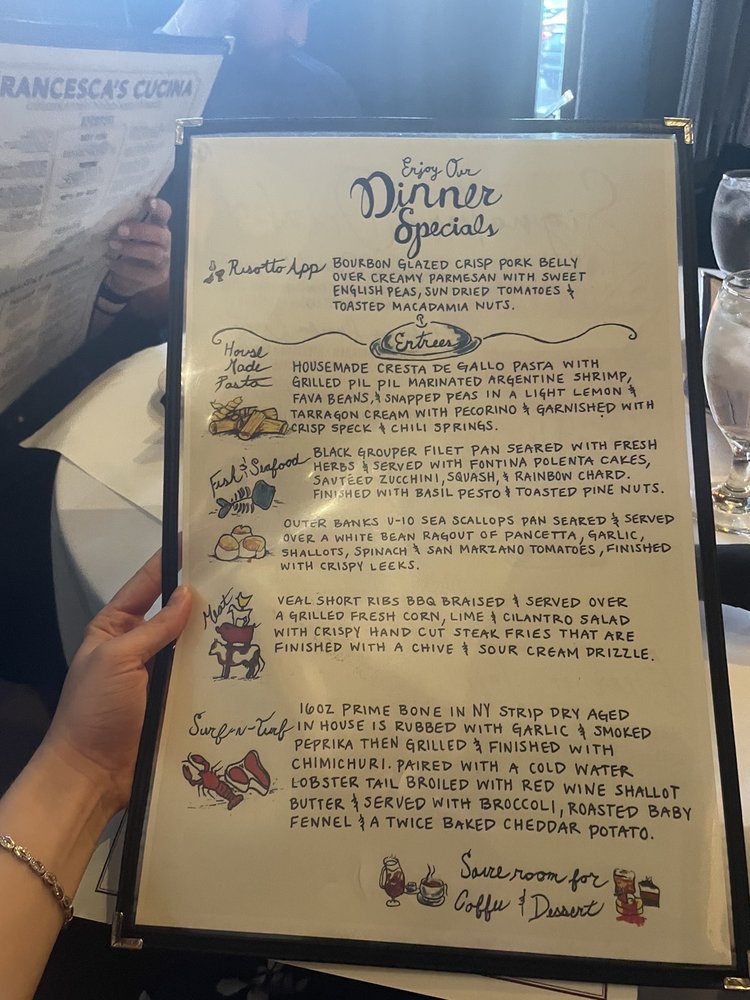 RANCESCA'S CUCINA
Enjoy Our
Dinner
Specials
Risotto App
BOURBON GLAZED CRISP PORK BELLY
OVER CREAMY PARMESAN WITH SWEET
ENGLISH PEAS, SUN DRIED TOMATOES &
TOASTED MACADAMIA NUTS.
Entrees
House
Made
Pasta
HOUSEMADE CRESTA DE GALLO PASTA WITH
GRILLED PIL PIL MARINATED ARGENTINE SHRIMP,
FAVA BEANS, & SNAPPED PEAS IN A LIGHT LEMON &
TARRAGON CREAM WITH PECORINO & GARNISHED WITH
CRISP SPECK & CHILI SPRINGS.
Fish & Seafood
BLACK GROUPER FILET PAN SEARED WITH FRESH
HERBS & SERVED WITH FONTINA POLENTA CAKES,
SAUTÉED ZUCCHINI, SQUASH, & RAINBOW CHARD.
FINISHED WITH BASIL PESTO & TOASTED PINE NUTS.
OUTER BANKS U-10 SEA SCALLOPS PAN SEARED & SERVED
OVER A WHITE BEAN RAGOUT OF PANCETTA, GARLIC,
SHALLOTS, SPINACH & SAN MARZANO TOMATOES, FINISHED
WITH CRISPY LEEKS.
Meat
VEAL SHORT RIBS BBQ BRAISED & SERVED OVER
A GRILLED FRESH CORN, LIME & CILANTRO SALAD
WITH CRISPY HAND CUT STEAK FRIES THAT ARE
FINISHED WITH A CHIVE & SOUR CREAM DRIZZLE.
Surf-n-Turf
16OZ PRIME BONE IN NY STRIP DRY AGED
IN HOUSE IS RUBBED WITH GARLIC & SMOKED
PEPRIKA THEN GRILLED & FINISHED WITH
CHIMICHURI. PAIRED WITH A COLD WATER
LOBSTER TAIL BROILED WITH RED WINE SHALLOT
BUTTER & SERVED WITH BROCCOLI, ROASTED BABY
FENNEL & A TWICE BAKED CHEDDAR POTATO.
Save room for
Coffee & Dessert